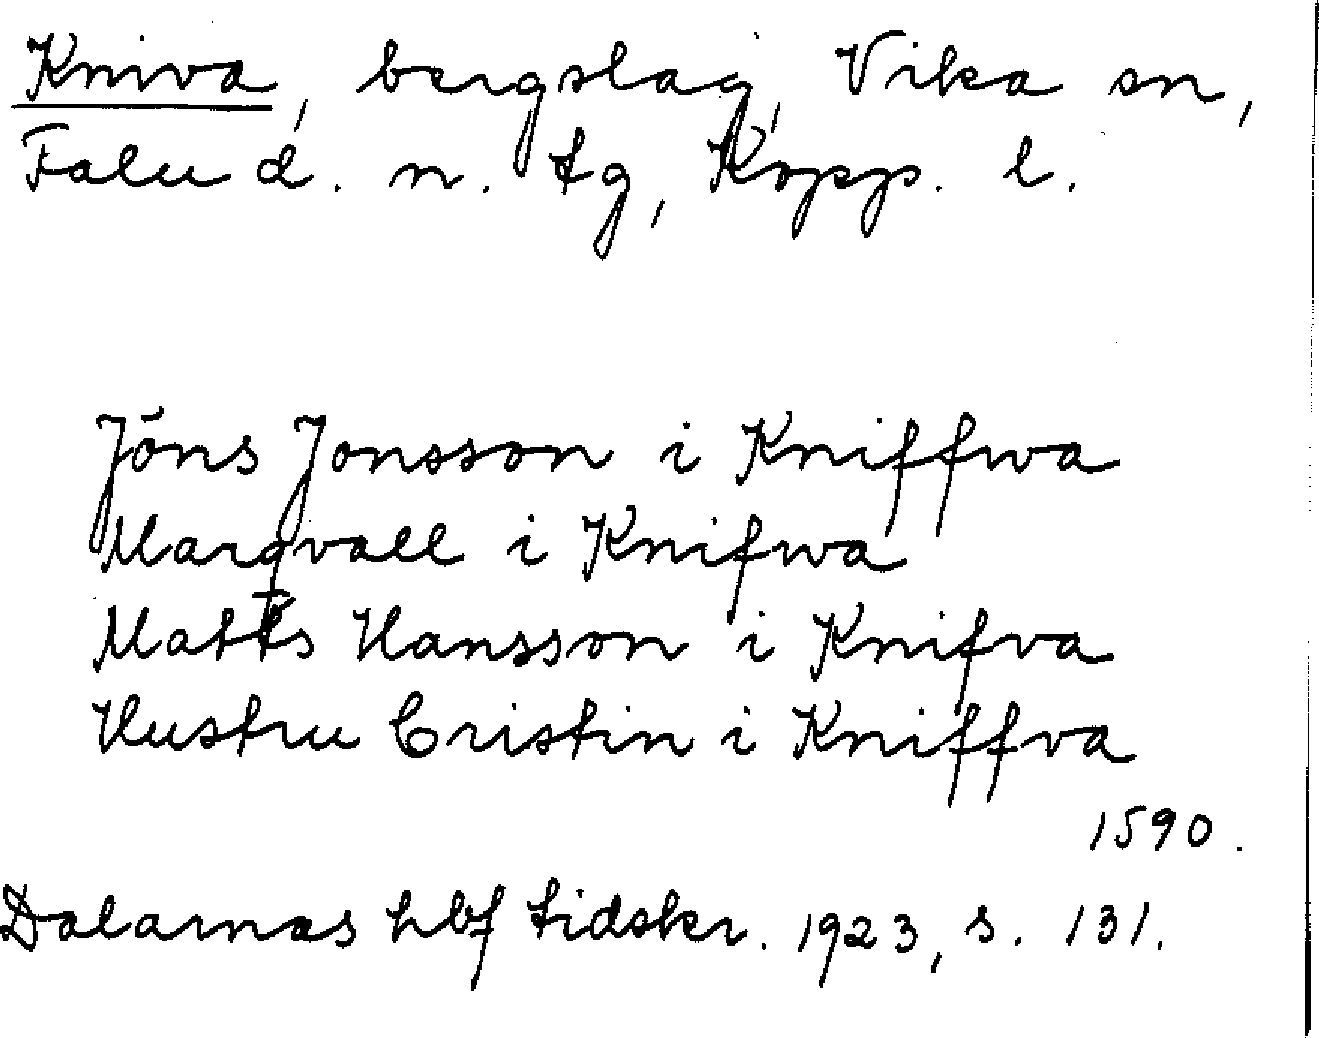 Kniva, bergslag, Vika sn,
Falu d. n. tg, Kopp. l.
Jöns Jonsson i Kniffwa
Marqvall i Knifwa
Matts Hansson i Knifva
Hustru Cristin i Kniffva
1590.
Dalarnas hbf tidskr. 1923, s. 131.